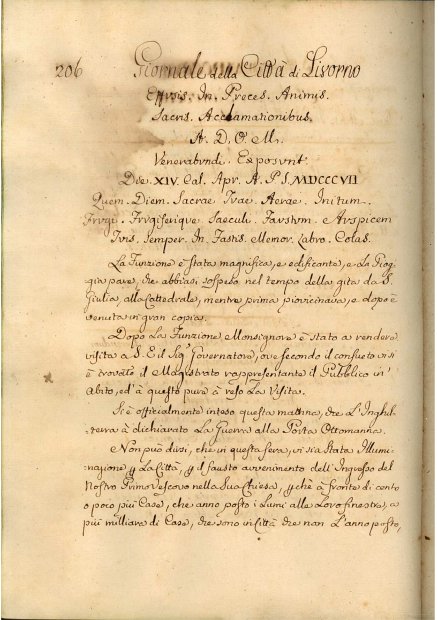 206 Giornale della Città di Livorno
Effusis. In. Preces. Animis.
Sacris. Acclamationibus.
A. D. O. M.
Venerabundi. Exposunt.
Die. XIV. Cal. Apr. A. P. S. MDCCCVII
Quem. Diem. Sacrae Tuae. Aerae. Initum.
Frugi. Frugiferique Saeculi. Faustum. e Auspicem
Tuis. Semper. In. Fastis. Memor. Labro. Colas.
La Funzione è stata magnifica, e edificante, e La Piog-
gia pare, che abbiasi sospeso nel tempo della gita da S.
Giulia, alla Cattedrale, mentre prima piovicinava, e dopo è
venuta in gran copia.
Dopo La Funzione Monsignore è stato a rendere
visita a S. E il Sig.r Governatore, ove secondo il consueto vi si
è trovato il Magistrato rappresentante il Pubblico in
Abito, ed' à questo pure à reso La Visita.
Si è officialmente inteso questa mattina, che L'Inghil-
terra à dichiarato La Guerra alla Porta Ottomanna.
Non può dirsi, che in questa sera, vi sia stata Illumi-
nazione p La Città, p il fausto avvenimento dell' Ingresso del
Nostro Primo Vescovo nella Sua Chiesa, p chè à fronte di cento
o poco più Case, che anno posto i Lumi alle Loro finestre, a
più migliara di Case, che sono in Città che non L'anno posto,